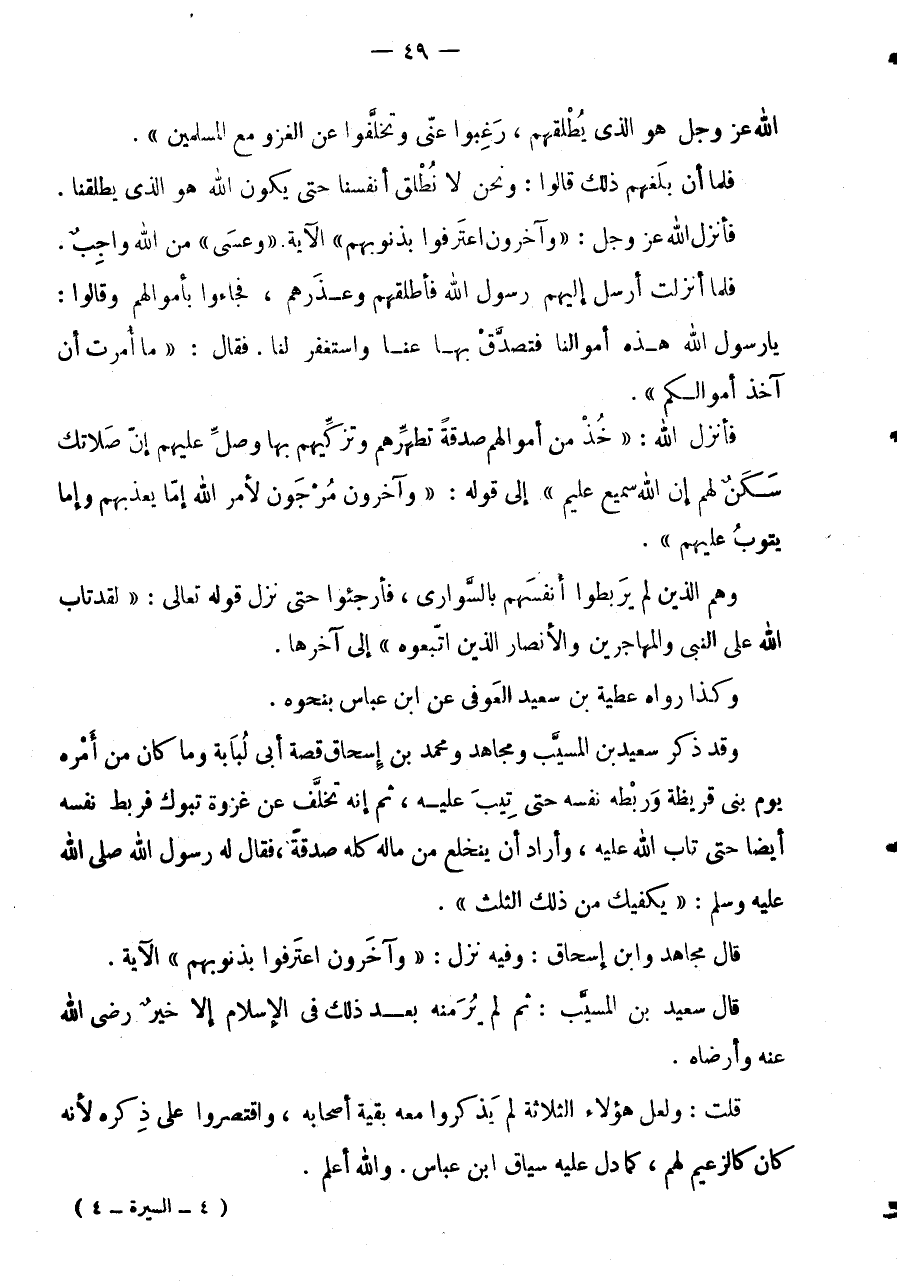 — ٤٩ —
الله عز وجل هو الذى يُطْلقهم ، رَغِبوا عنّى وتخلَّفوا عن الغزو مع المسلمين » .
فلما أن بلَغهم ذلك قالوا : ونحن لا نُطْلق أنفسنا حتى يكون الله هو الذى يطلقنا .
فأنزل الله عز وجل : « وآخرون اعتَرفوا بذنوبهم » الآية . « وعسَى » من الله واجِبٌ .
فلما أنزلت أرسل إليهم رسول الله فأطلقهم وعـذَرهم ، فجاءوا بأموالهم وقالوا :
يارسول الله هـذه أموالنا فتصدَّقْ بهـا عنـا واستغفر لنا . فقال : « ما أُمرت أن
آخذ أموالـكم » .
فأنزل الله : « خُذْ من أموالهم صدقةً تطهِّرهم وتزكِّيهم بها وصلِّ عليهم إنّ صَلاتك
سَـكَنٌ لهم إن الله سميع عليم » إلى قوله : « وآخرون مُرْجَون لأمر الله إمّا يعذبهم وإما
يتوبُ عليهم » .
وهم الذين لم يَربطوا أنفسَهم بالسَّوارى ، فأرجئوا حتى نزل قوله تعالى : « لقد تاب
الله على النبى والمهاجرين والأنصار الذين اتّبعوه » إلى آخرها .
وكذا رواه عطية بن سعيد العَوفى عن ابن عباس بنحوه .
وقد ذكر سعيد بن المسيَّب ومجاهد ومحمد بن إسحاق قصة أبى لُبَابة وما كان من أَمْره
يوم بنى قريظة وَربْطه نفسه حتى تِيبَ عليـه ، ثم إنه تخلَّف عن غزوة تبوك فربط نفسه
أيضا حتى تاب الله عليه ، وأراد أن ينخلع من ماله كله صدقةً ، فقال له رسول الله صلى الله
عليه وسلم : « يكفيك من ذلك الثلث » .
قال مجاهد وابن إسحاق : وفيه نزل : « وآخَرون اعتَرفوا بذنوبهم » الآية .
قال سعيد بن المسيَّب : ثم لم يُرَ منه بعـد ذلك فى الإسلام إلا خيرٌ رضى الله
عنه وأرضاه .
قلت : ولعل هؤلاء الثلاثة لم يَذكروا معه بقية أصحابه ، واقتصروا على ذِكره لأنه
كان كالزعيم لهم ، كما دل عليه سياق ابن عباس . والله أعلم .
( ٤ – السيرة – ٤ )